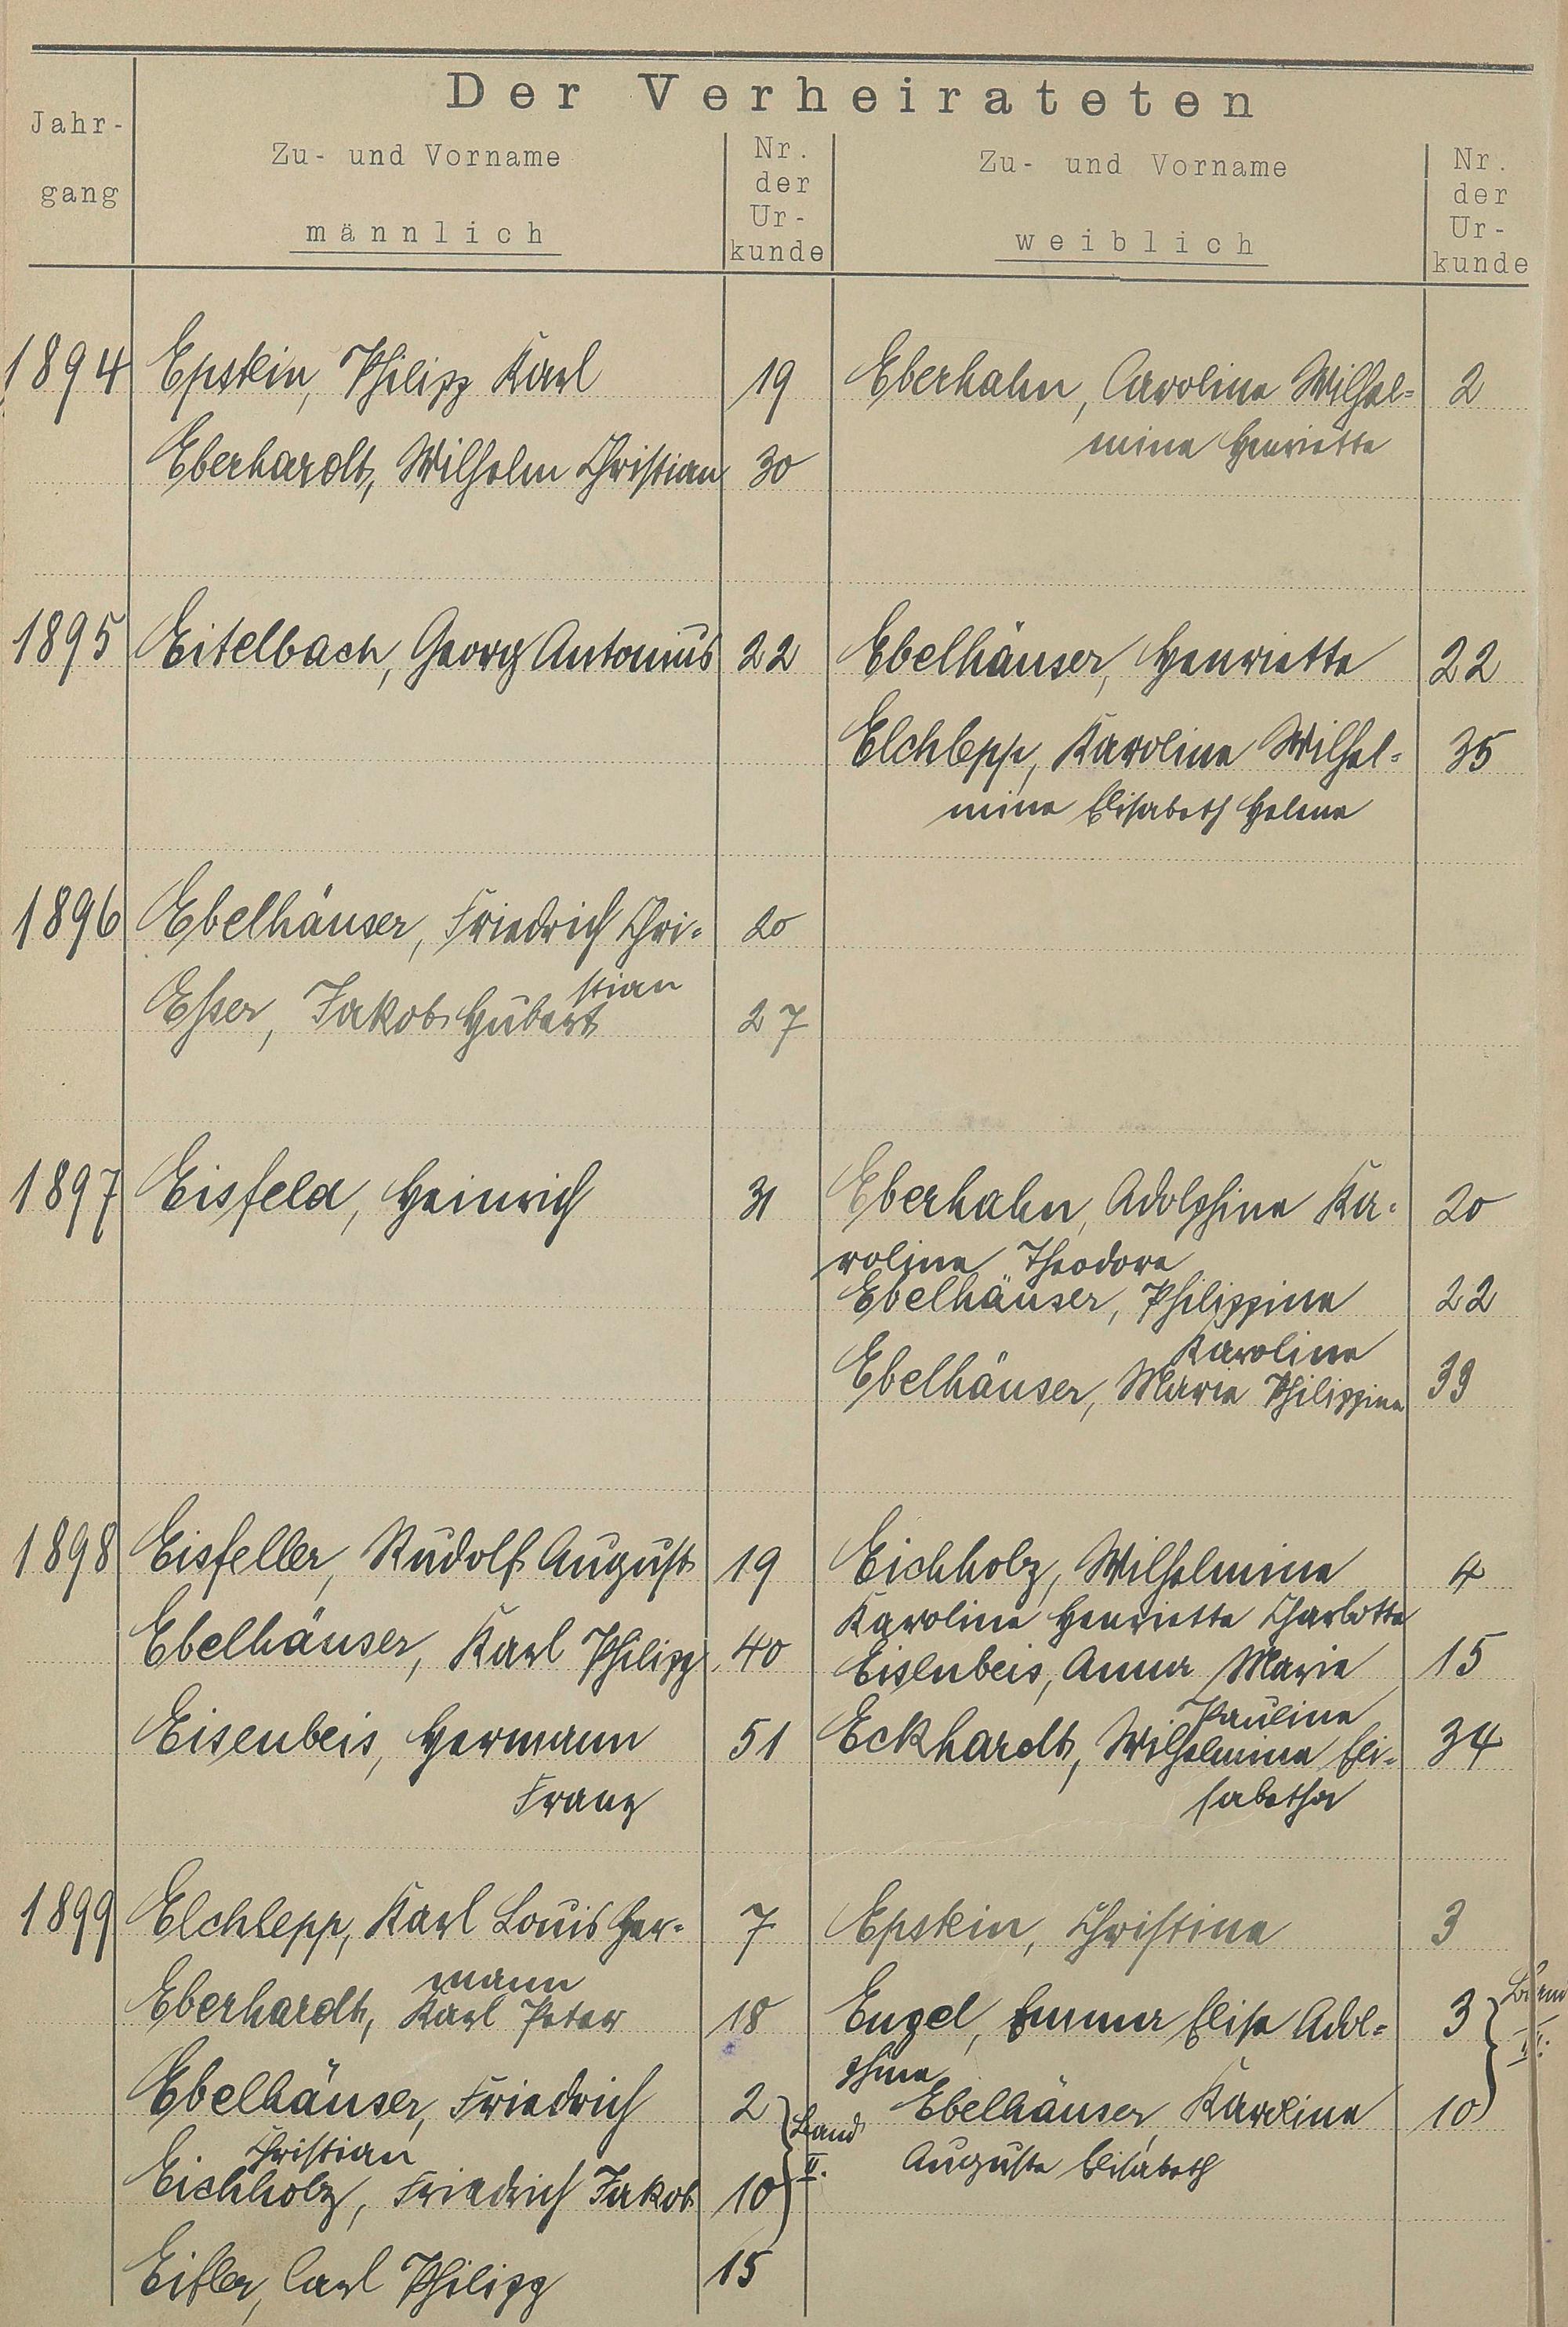 Der Verheirateten
Jahr-
gang
Zu- und Vorname
männlich
Nr.
der
Ur-
kunde
Zu- und Vorname
weiblich
Nr.
der
Ur-
kunde
1894 Epstein, Philipp Karl 19 Eberhahn, Caroline Wilhel= 2
mine Henriette
Eberhardt, Wilhelm Christian 30
1895 Eitelbach, Georg Antonius 22 Ebelhäuser, Henriette 22
Elchlepp, Karoline Wilhel= 35
mine Elisabeth Helene
1896 Ebelhäuser, Friedrich Chri= 20
stian
Esser, Jakob Hubert 27
1897 Eisfeld, Heinrich 31 Eberhahn, Adolphine Ka= 20
roline Theodore
Ebelhäuser, Philippine 22
Karoline
Ebelhäuser, Marie Philippine 39
1898 Eisfeller, Rudolf August 19 Eichholz, Wilhelmine 4
Karoline Henriette Charlotte
Ebelhäuser, Karl Philipp 40 Eisenbeis, Anna Marie 15
Pauline
Eisenbeis, Hermann 51 Eckhardt, Wilhelmine Eli= 34
Franz sabetha
1899 Elchlepp, Karl Louis Her= 7 Epstein, Christine 3
mann
Eberhardt, Karl Peter 18 Engel, Emma Elise Adol= 3 Band
phine II.
Ebelhäuser, Friedrich 2 Band Ebelhäuser, Karoline 10
Christian II. Auguste Elisabeth
Eichholz, Friedrich Jakob 10
Eifler, Carl Philipp 15